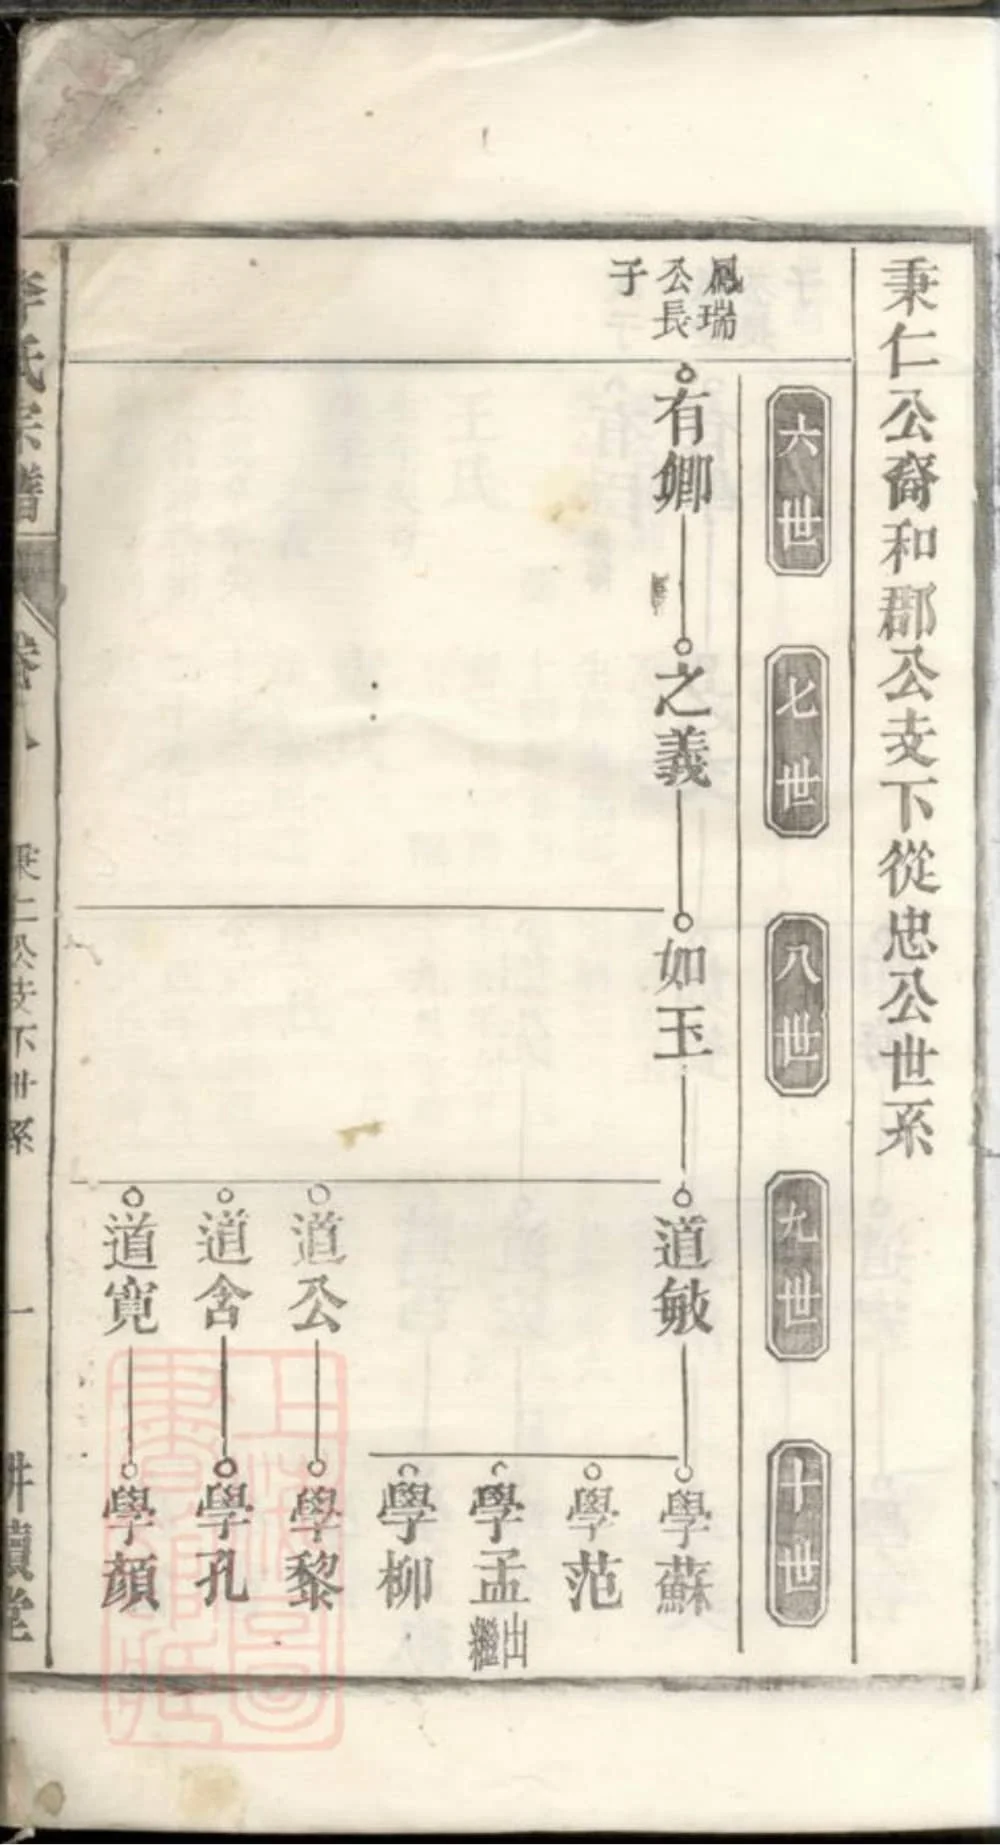 秉仁公裔和郡公支下從忠公世系
六世
七世
八世
九世
十世
鳳瑞
公長
子
有卿
之義
如玉
道敏
學蘇
學范
學孟
出
繼
學柳
道公
學黎
道含
學孔
道寬
學顔
李氏宗譜
卷八
秉仁公支下世系
一
耕讀堂
上海圖
書館藏